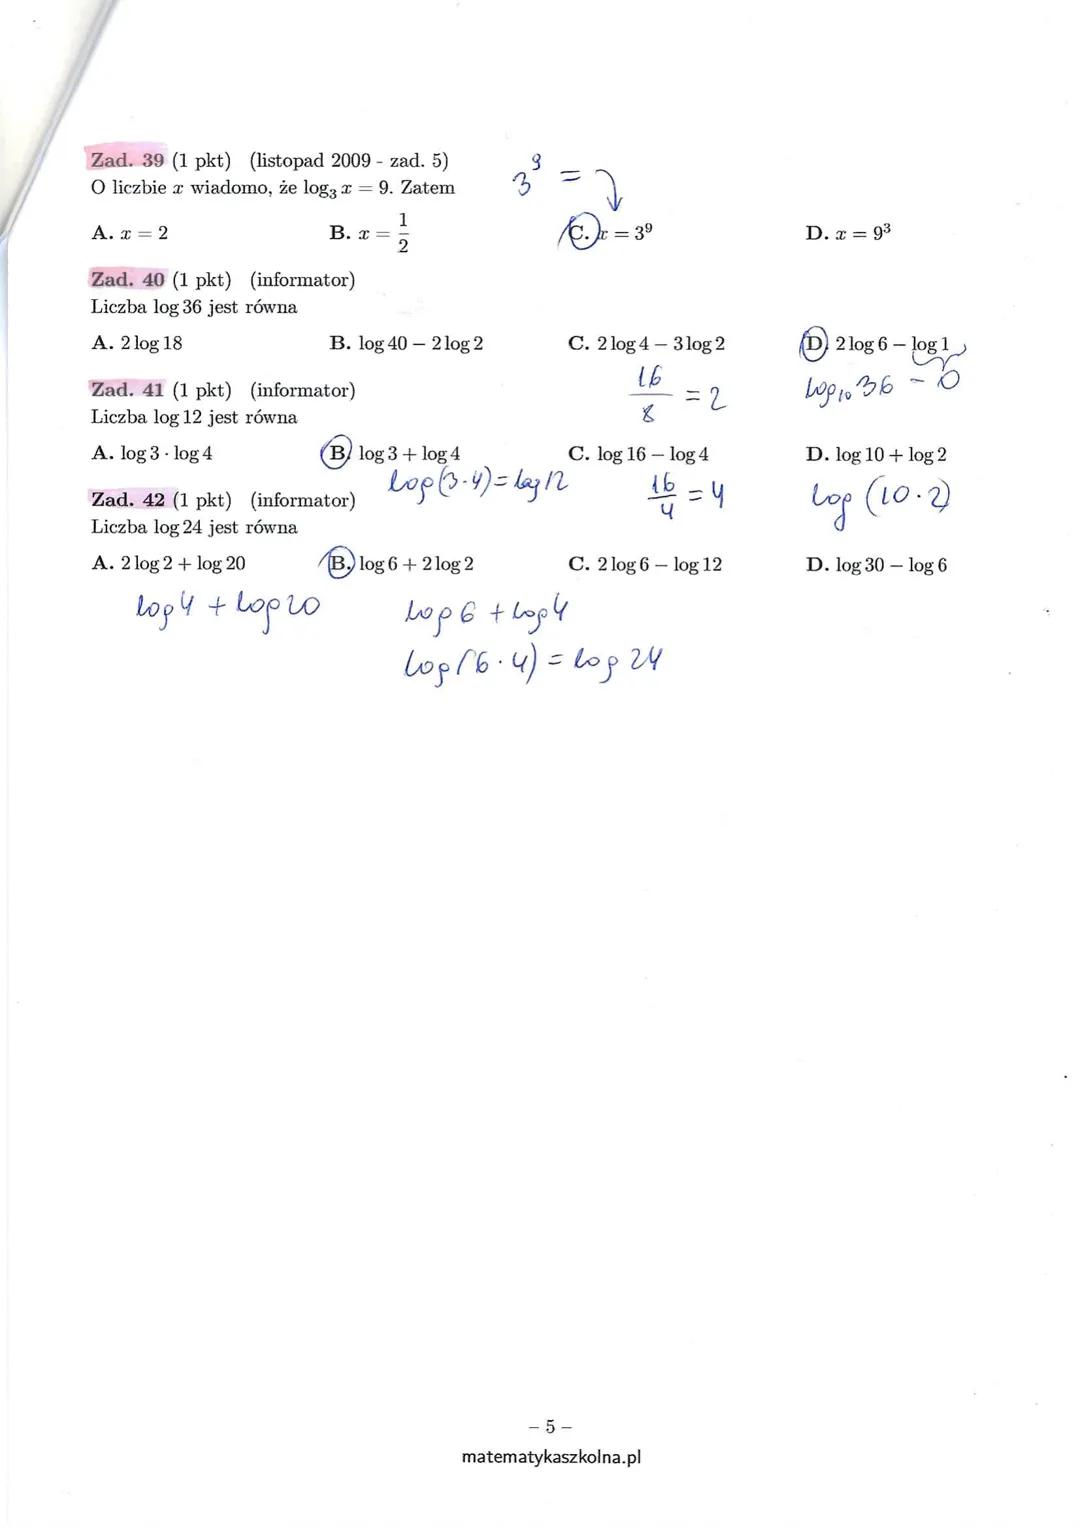 Zad. 39 (1 pkt) (listopad 2009 - zad. 5)
O liczbie x wiadomo, że log₃ x = 9. Zatem
3⁹ =
A. x = 2 B. x = 1/2 C. x = 3⁹ D. x = 9³
Zad. 40 (1 pkt) (informator)
Liczba log 36 jest równa
A. 2 log 18 B. log 40 − 2 log 2 C. 2 log 4 − 3 log 2 D. 2 log 6 − log 1
16/8 = 2 log₁₀ 36 − 0
Zad. 41 (1 pkt) (informator)
Liczba log 12 jest równa
A. log 3 · log 4 B. log 3 + log 4 C. log 16 − log 4 D. log 10 + log 2
log(3·4) = log 12 16/4 = 4 log (10·2)
Zad. 42 (1 pkt) (informator)
Liczba log 24 jest równa
A. 2 log 2 + log 20 B. log 6 + 2 log 2 C. 2 log 6 − log 12 D. log 30 − log 6
log 4 + log 20 log 6 + log 4
log (6·4) = log 24
– 5 –
matematykaszkolna.pl